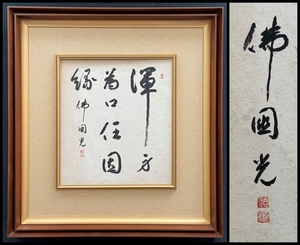 渾身
為口任因
縁 佛国光
佛国光